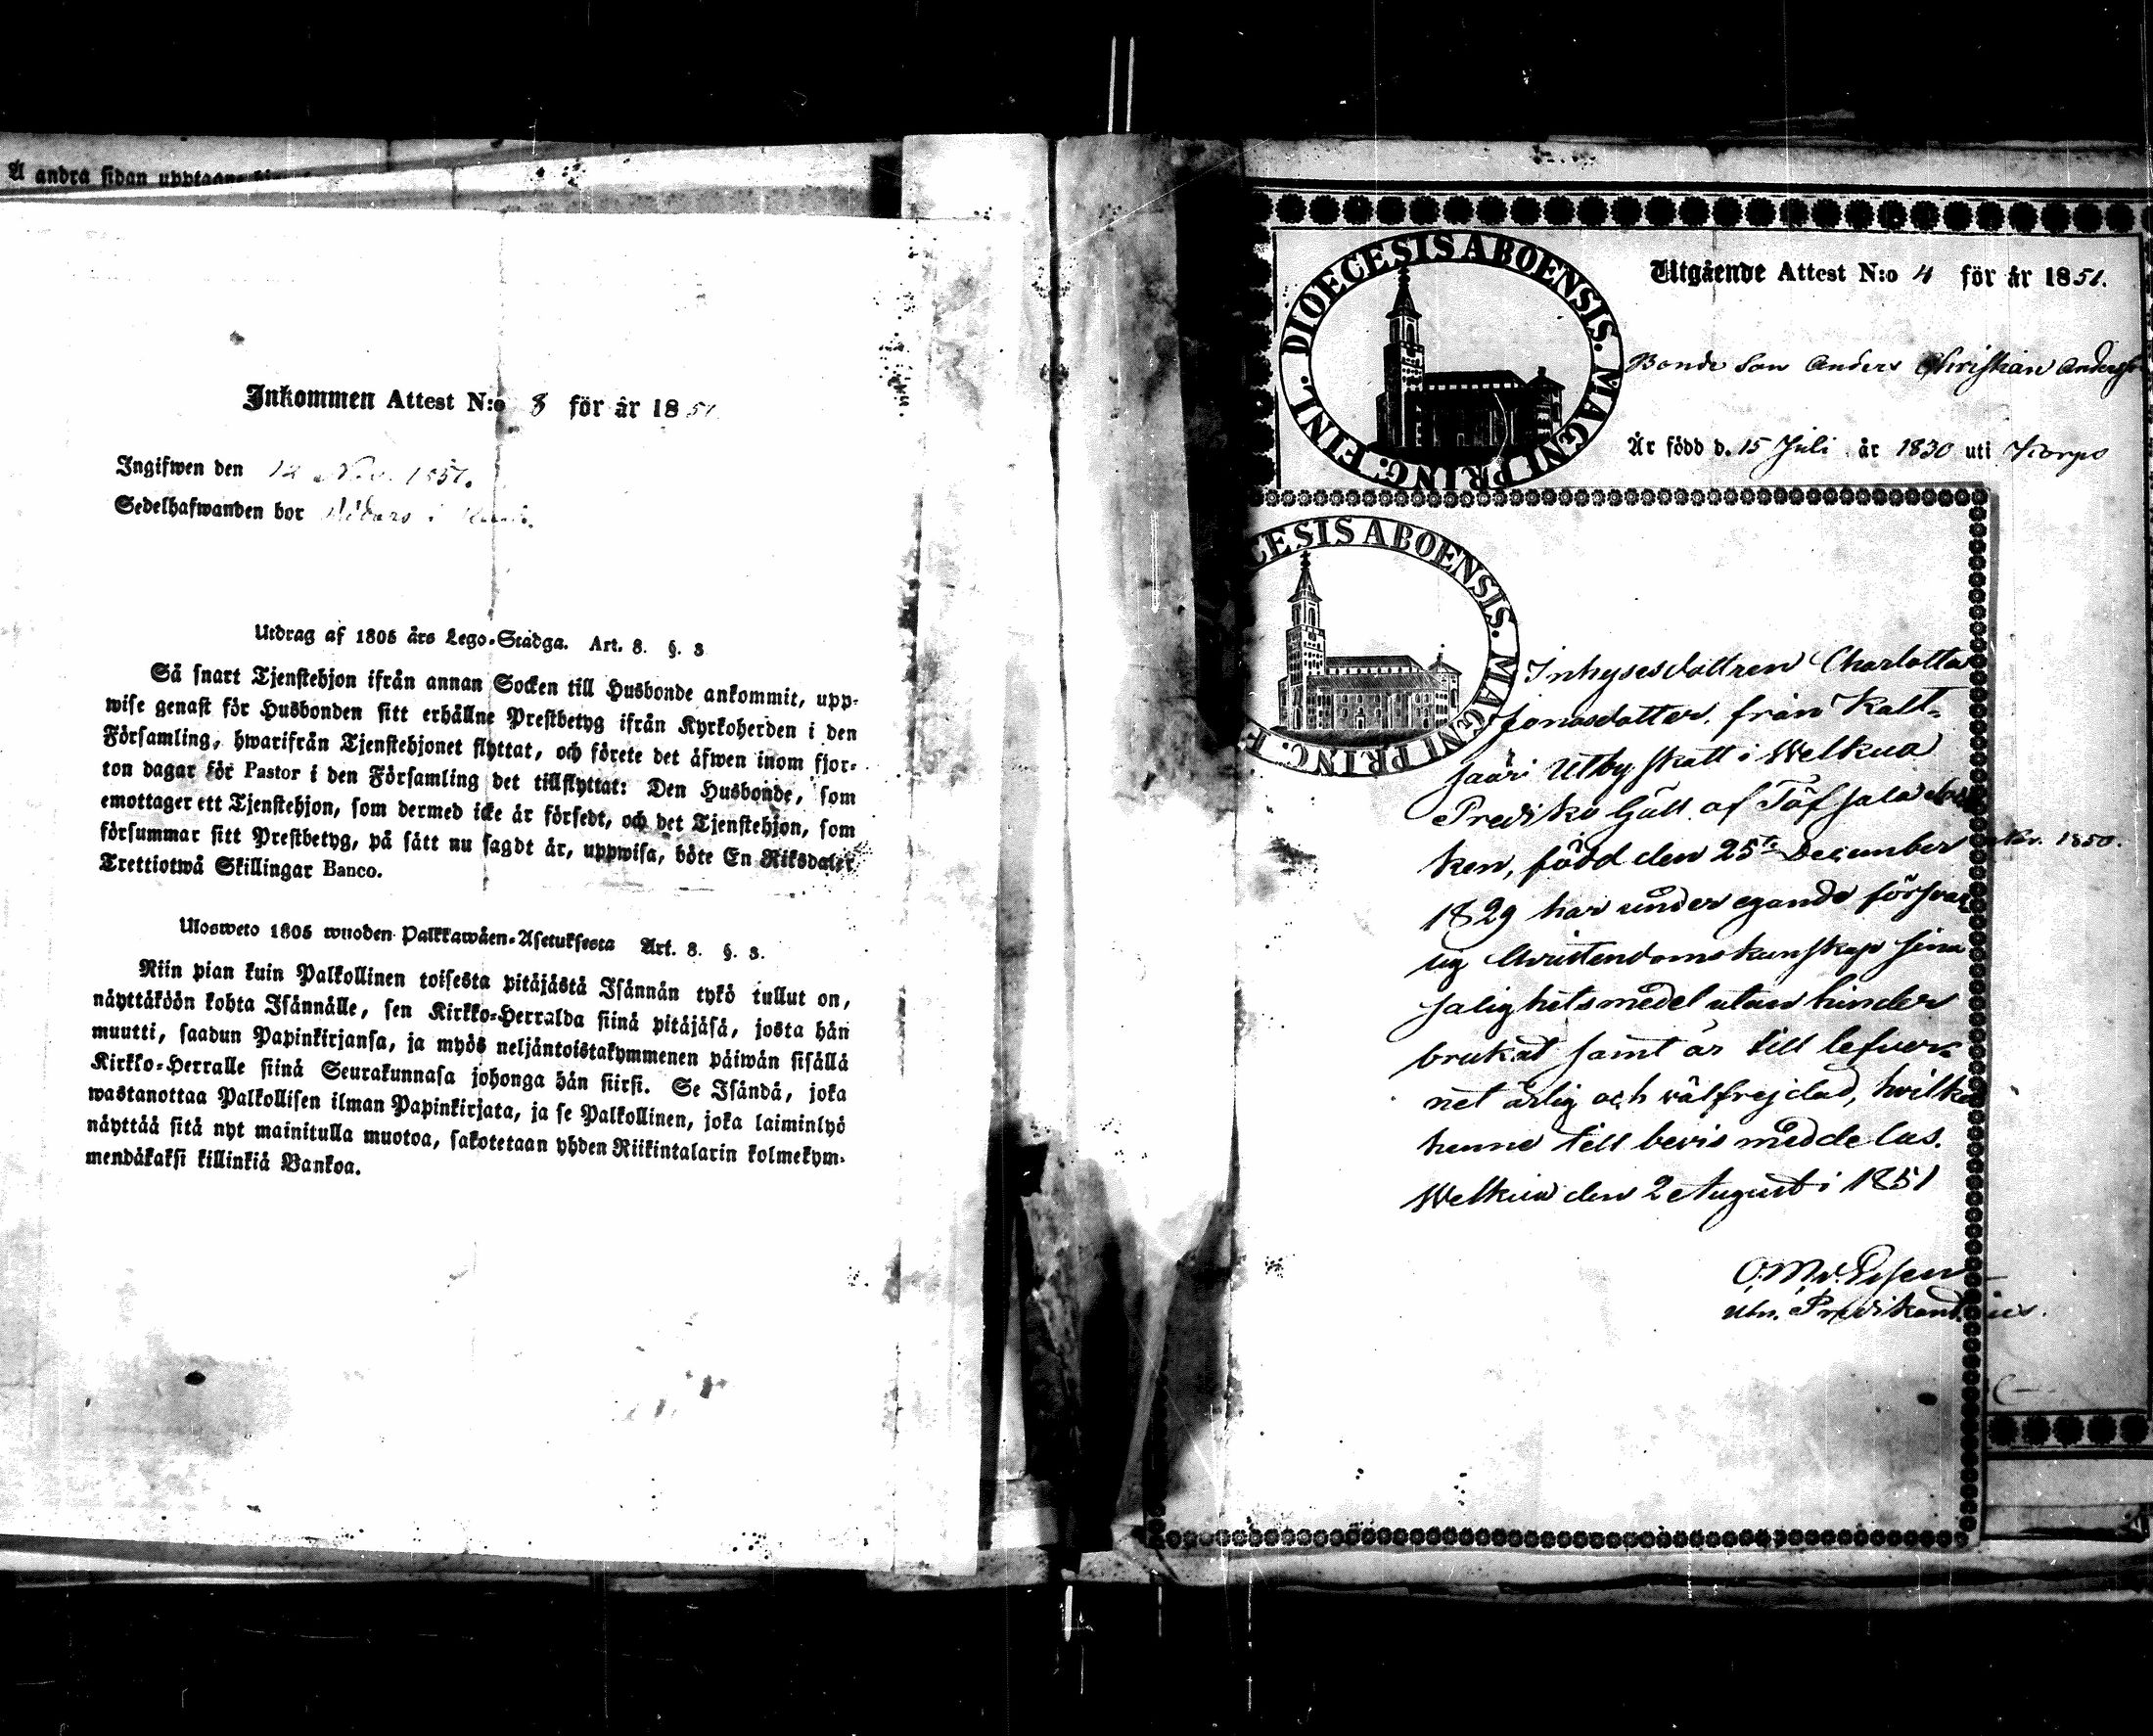 Å andra sidan upptages
Inkommen Attest N:o 8 för år 1851
Ingifwen den 12 Nov. 1851.
Sedelhafwanden bor
Utdrag af 1805 års Lego-Stadga. Art. 8. §. 3
Så snart Tjenstehjon ifrån annan Socken till Husbonde ankommit, upp-
wise genast för Husbonden sitt erhållne Prestbetyg ifrån Kyrkoherden i den
Församling, hwarifrån Tjenstehjonet flyttat, och förete det äfwen inom fjor-
ton dagar för Pastor i den Församling det tillflyttat: Den Husbonde, som
emottager ett Tjenstehjon, som dermed icke är försedt, och det Tjenstehjon, som
försummar sitt Prestbetyg, på sätt nu sagdt är, uppwisa, böte En Riksdaler
Trettiotwå Skillingar Banco.
Ulosweto 1805 wuoden Palkkawäen-Asetuksesta Art. 8. §. 3.
Niin pian kuin Palkollinen toisesta pitäjästä Isännän tykö tullut on,
näyttäköön kohta Isännälle, sen Kirkko-Herralda siinä pitäjäsä, josta hän
muutti, saadun Papinkirjansa, ja myös neljäntoistakymmenen päiwän sisällä
Kirkko-Herralle siinä Seurakunnasa johonga hän siirsi. Se Isändä, joka
wastanottaa Palkollisen ilman Papinkirjata, ja se Palkollinen, joka laiminlyö
näyttää sitä nyt mainitulla muotoa, sakotetaan yhden Riikintalarin kolmekym-
mendäkaksi killinkiä Bankoa.
DIOECESIS ABOENSIS. MAGNI PRINC. FINL.
Utgående Attest N:o 4 för år 1851.
Bonde Son Anders Christian Anders
Är född d. 15 Juli år 1830 uti Korpo
CESIS ABOENSIS. MAGNI PRINC. F
Inhysesdottren Charlotta
Jonasdotter, från Katt-
saari Utby skatt i Welkua
Prediko Gäll af Töfsala
ken, född den 25te December
1850.
1829 har under egande
lig Christendomskunskap sina
salighetsmedel utan hinder
brukat samt är till lefver-
net ärlig och välfrejdad, hvilket
henne till bevis meddelas.
Welkua den 2 Augusti 1851
O. M. v. Essen
Predikant